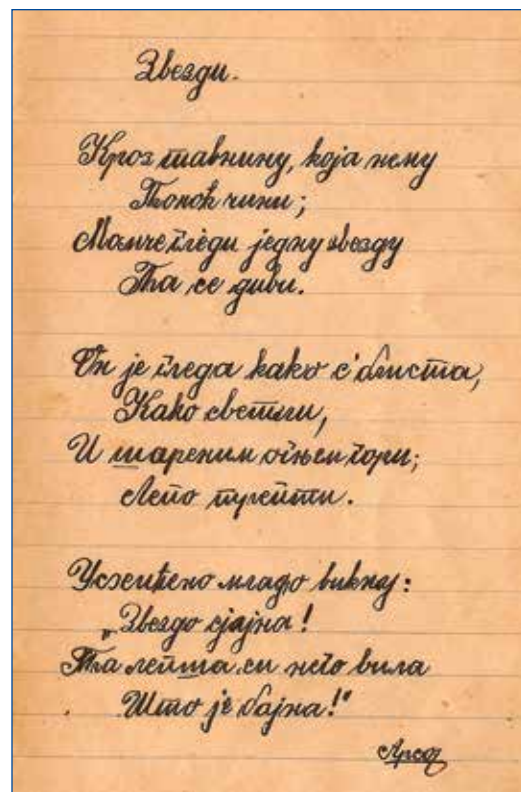 Звезди.
Кроз тавнину, која нему
Понок чини;
Момче гледи једну звезду
Па се диви.
Он је гледа како с' блиста,
Како светли,
И шареним огњем гори;
Лепо трепти.
Усхићено младо викну:
„Звездо сјајна!
Та лепша си него вила
Што је бајна!"